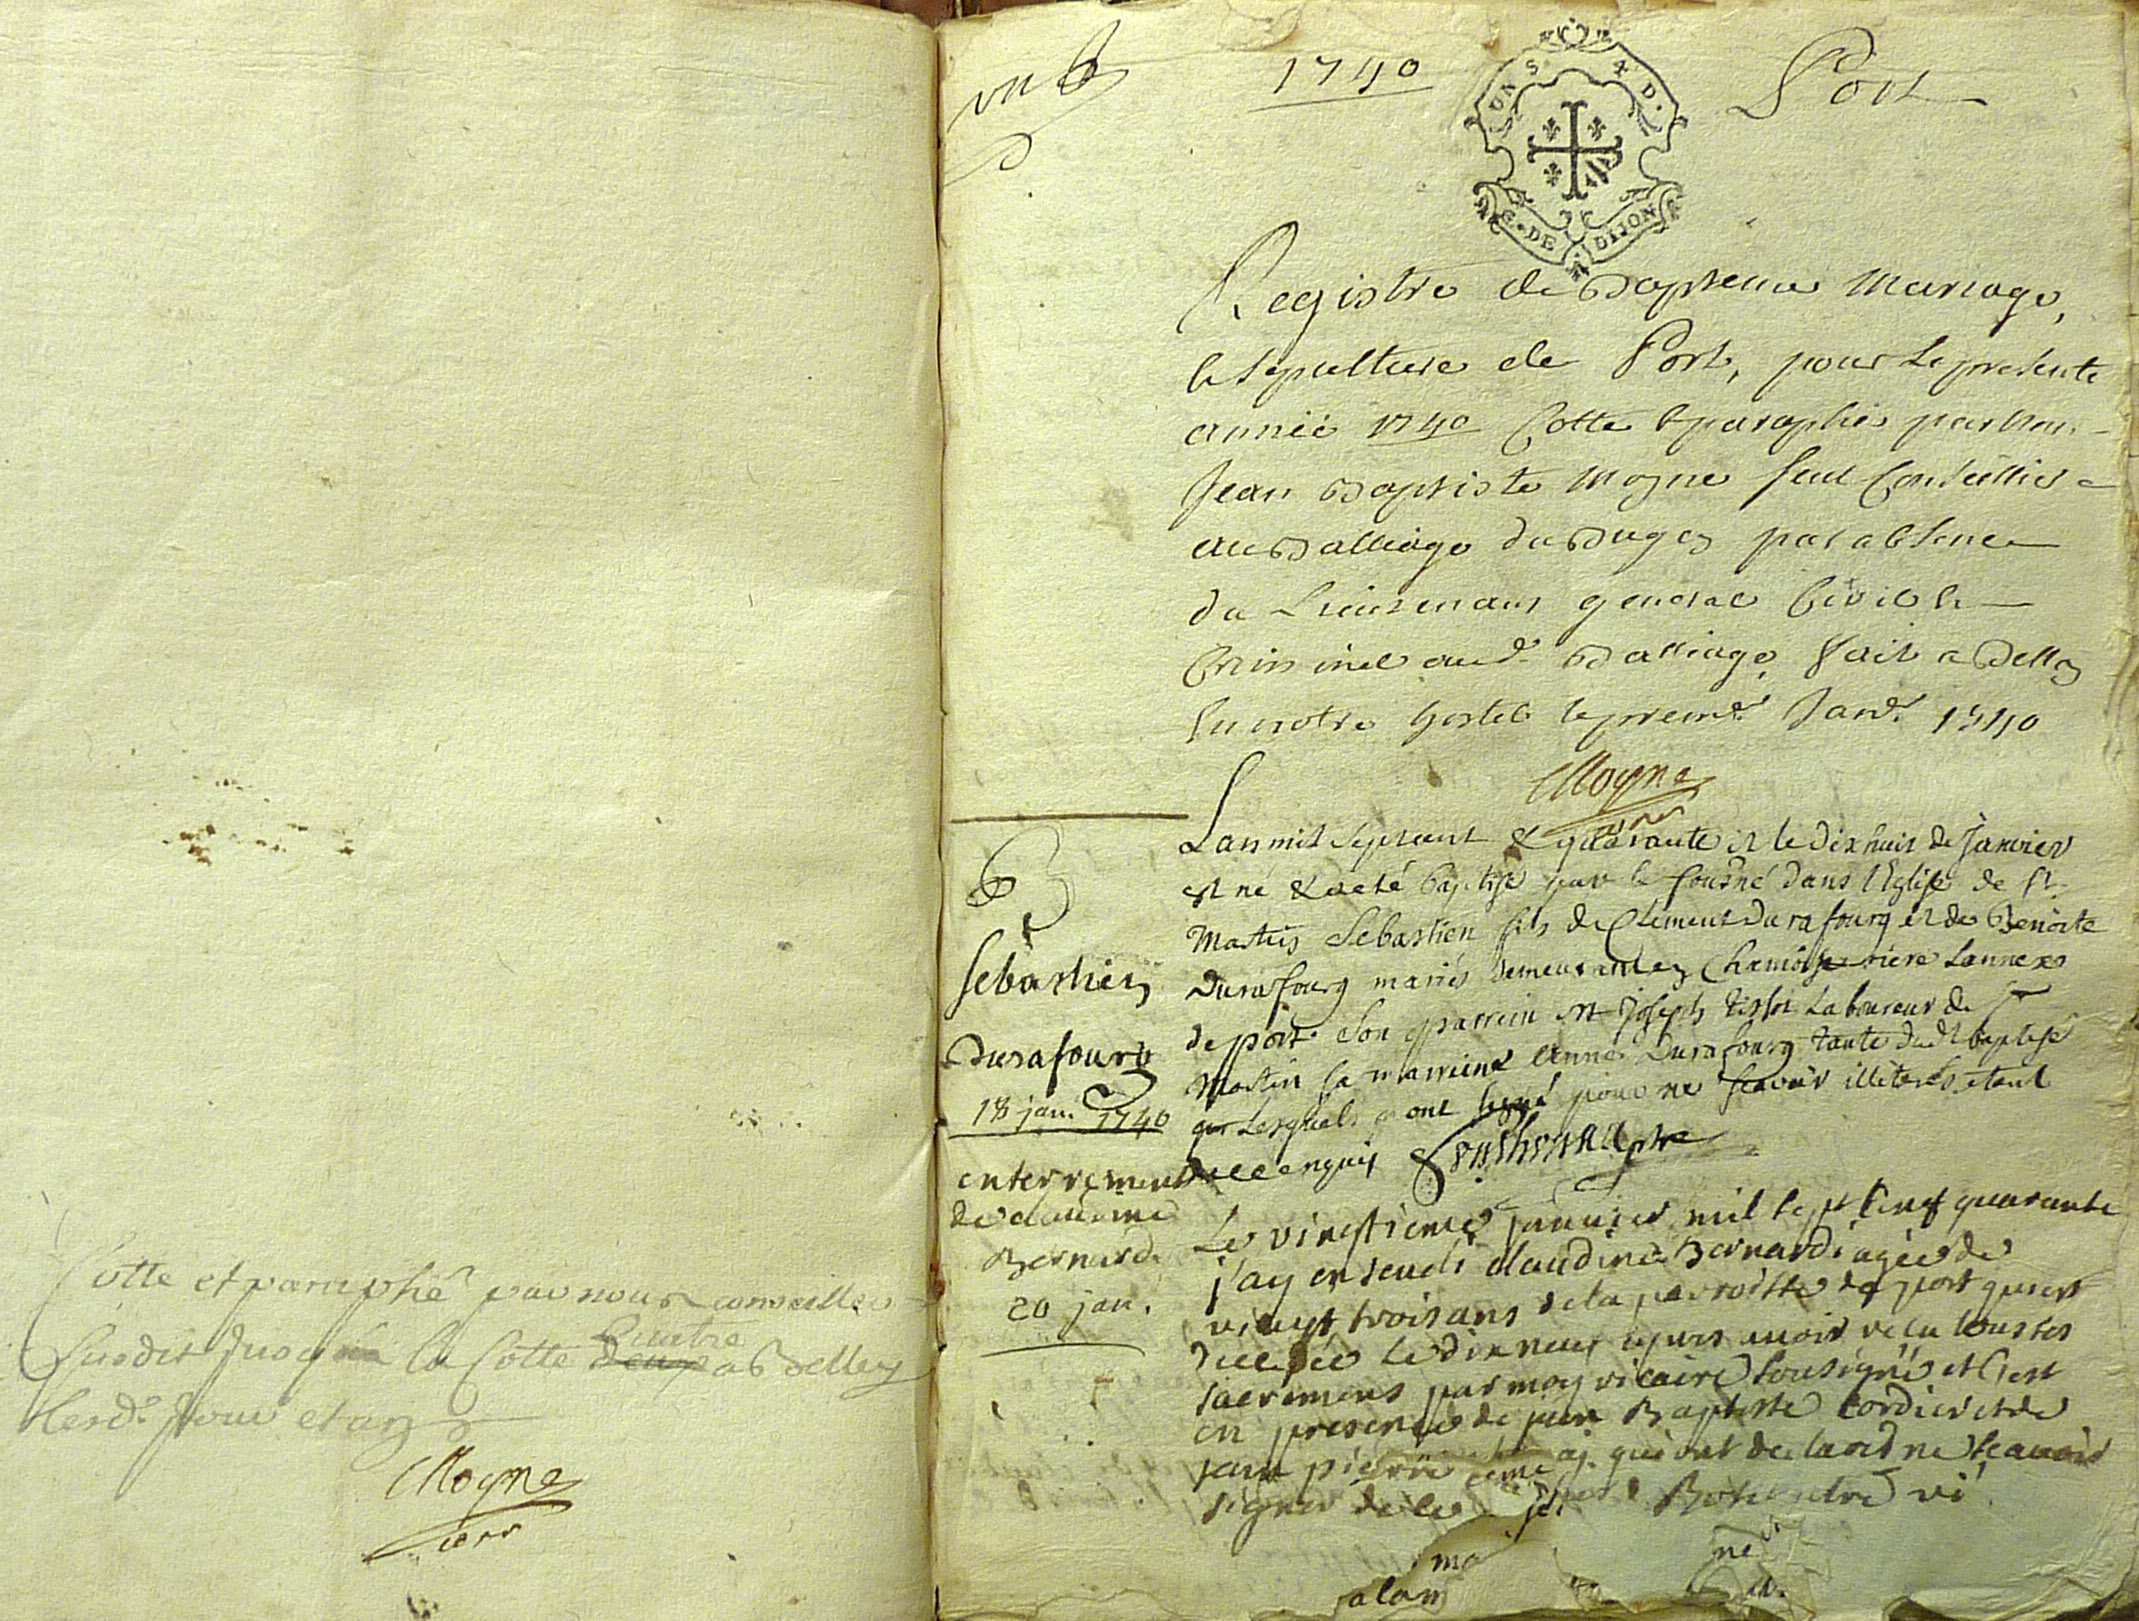 Cotte et paraphé par nous conseiller
susdit jusqua la Cotte quatre a Belley
Moyne
1740
Port
UN S. 4 D.
G. DE DIJON
Registre de Bapteme Mariage,
et Sepulture de Port, pour la presente
année 1740 Cotte et paraphé par nous
Jean Baptiste Moyne seul Conseillier
au Balliage du Bugey par absence
du Lieutenant general Civil et
Criminel aud. Balliage, fait a Belley
en notre hostel le premr Janr 1740
Moyne
Lan mil sept cent & quarante et le dix huit de Janvier
est né & a eté baptisé par le sousné dans l'Eglise de St
Martin Sebastien fils de Clement Durafourg et de Benoite
Durafourg mariés demeurant en Chamoise riere Lannexe
de port Son parrein est Joseph tissot Laboureur de St
Martin sa marreine Anne Durafourg tante dudt baptisé
Lesquels n'ont signé pour ne scavoir illiterés etant
de ce enquis
Sebastien
Durafourg
18 jan. 1740
enterrement
de claudine
Bernardi
20 jan.
Le vingtieme janvier mil sept cent quarante
j'ay enseveli claudine Bernardi agée de
vingt trois ans de la parroisse de port qui est
decedée le dix neuf apres avoir recu tous les
sacremens par moy vicaire sousigné et c'est
en presence de jean Baptiste cordier et de
jean pierre qui ont declaré ne scavoir
signer de ce
ma
alam
ne